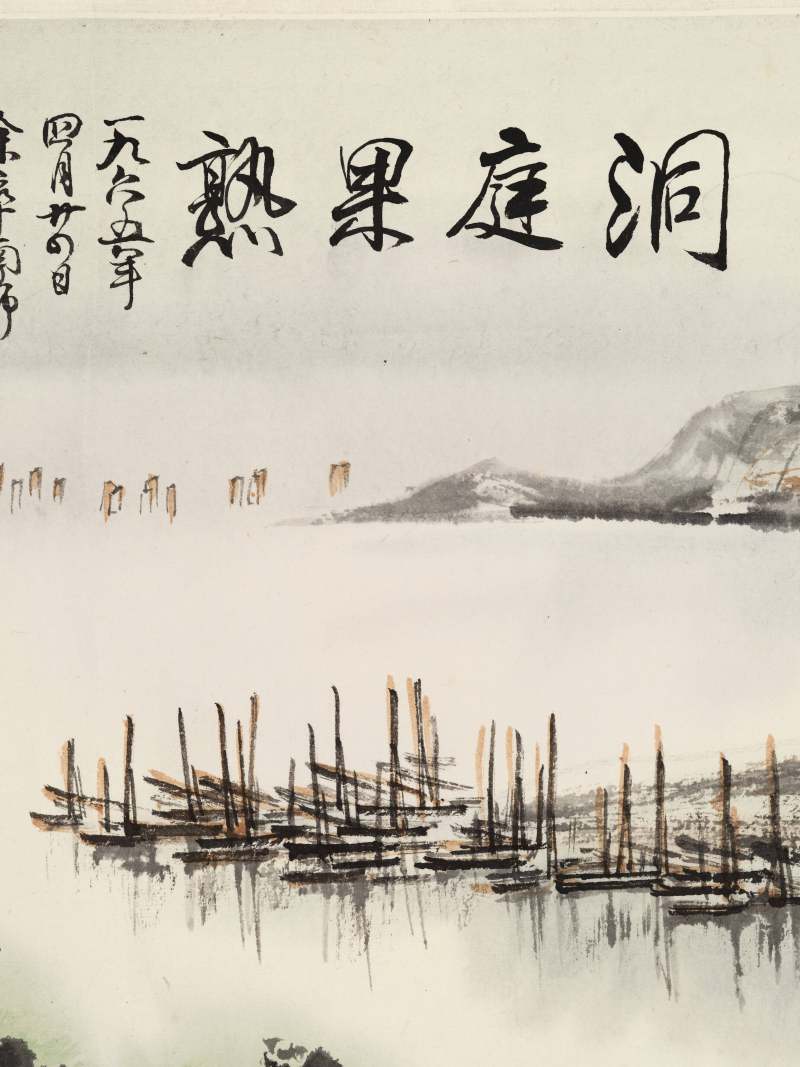 洞庭果熟
一九六五年
四月廿四日